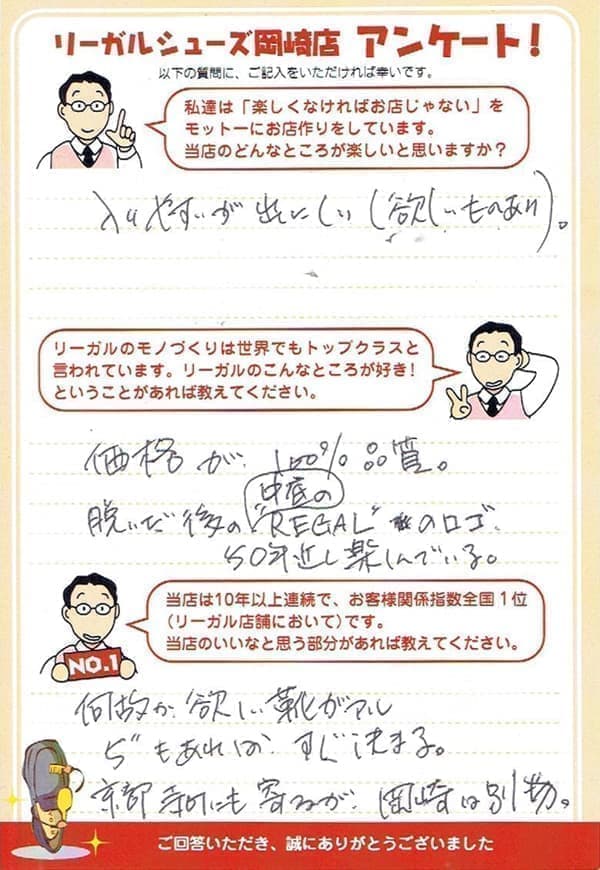 リーガルシューズ岡崎店 アンケート!
以下の質問に、ご記入をいただければ幸いです。
私達は「楽しくなければお店じゃない」を
モットーにお店作りをしています。
当店のどんなところが楽しいと思いますか?
入りやすいが出にくい(欲しいものあり)。
リーガルのモノづくりは世界でもトップクラスと
言われています。リーガルのこんなところが好き!
ということがあれば教えてください。
価格が100%品質。
中底の
脱いだ後の"REGAL"のロゴ、
50年近く楽しんでいる。
当店は10年以上連続で、お客様関係指数全国1位
(リーガル店舗において)です。
当店のいいなと思う部分があれば教えてください。
NO.1
何故か欲しい靴がアル
5"もあればすぐ決まる。
京都寺町にも寄るが、岡崎は別物。
ご回答いただき、誠にありがとうございました